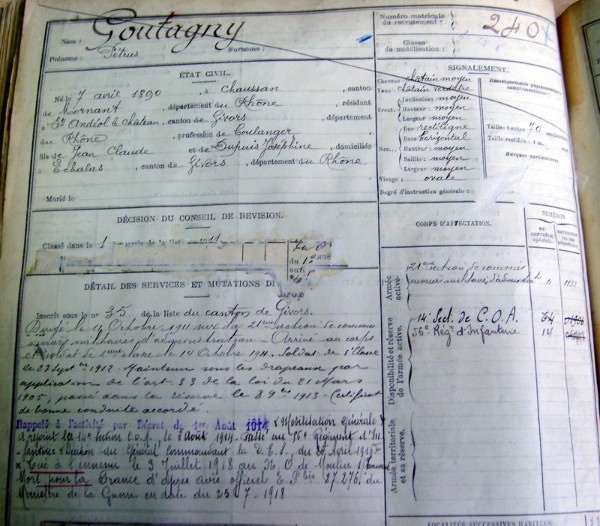 Goutagny
Nom :
Prénoms : Pétrus Surnoms :
Numéro matricule
du recrutement :
240
Classe
de mobilisation :
ÉTAT CIVIL.
Né le 7 avril 1890, à Chaussan, canton
de Mornant, département du Rhône, résidant
à St Andéol le Château, canton de Givors, département
du Rhône, profession de boulanger
fils de Jean Claude et de Dupuis Joséphine, domiciliés
à Echalas, canton de Givors, département du Rhône
Marié le
SIGNALEMENT.
Cheveux châtain moyen
Yeux châtain verdâtre
Front. Inclinaison moyen
Hauteur moyen
Largeur moyen
Nez. Dos rectiligne
Base horizontal
Hauteur moyen
Saillie moyen
Largeur moyen
Visage : ovale
Degré d'instruction générale :
DÉCISION DU CONSEIL DE RÉVISION.
Classé dans la 1 partie de la liste en 1911
DÉTAIL DES SERVICES ET MUTATIONS
Inscrit sous le n° 35 de la liste du canton de Givors.
Dirigé le 14 Octobre 1911 sur la 21eme section de commis
et ouvriers militaires d'administration. Arrivé au corps
et soldat de 2eme classe le 14 Octobre 1911. Soldat de 1e Classe
le 23 1912. Maintenu sous les drapeaux par
application de l'art 33 de la loi du 21 Mars
1905, passé dans la réserve le 8 9bre 1913. Certificat
de bonne conduite accordé.
Rappelé à l'activité par Décret du 1er Août 1914 Mobilisation Générale
A rejoint la 14e section C.O.A. le 3 Août 1914. Passé au 56e Régiment d'In-
fanterie Décision du Général Commandant la D.E.S. du 30 Avril 1917
Tué à l'ennemi le 3 Juillet 1918 au N.O. de Moulin s/
Mort pour la France d'après avis officiel E.P. bis 27.276 du
Ministre de la Guerre en date du 25.7.1918
CORPS D'AFFECTATION.
NUMÉROS
Armée
active.
21eme section de commis
Disponibilité et réserve
de l'armée active.
14e Sect. de C.O.A.
56e Rég.t d'Infanterie
Armée territoriale
et sa réserve.
LOCALITÉS SUCCESSIVES HABITÉES